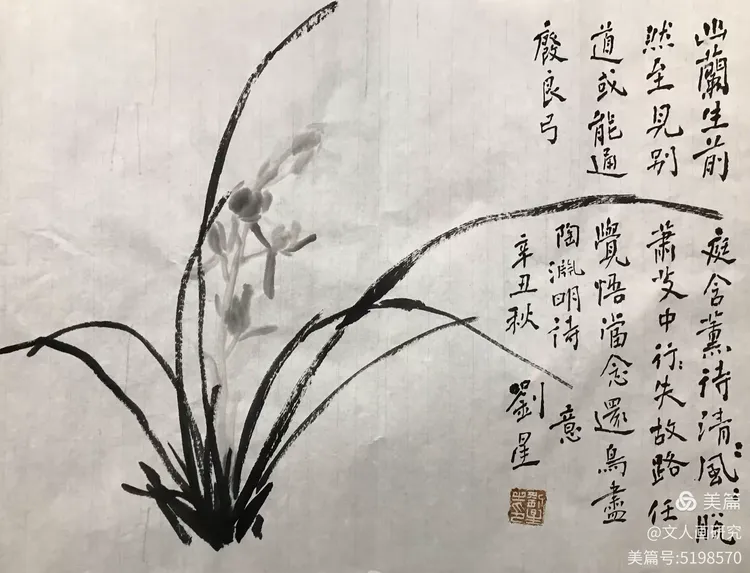 幽蘭生前庭含薰待清:風:脱
然至見别蕭艾中行:失故路任
道或能通覺悟當念還鳥盡
廢良弓陶淵明詩意
辛丑秋劉星
美篇
@文人画研究
美篇号:5198570